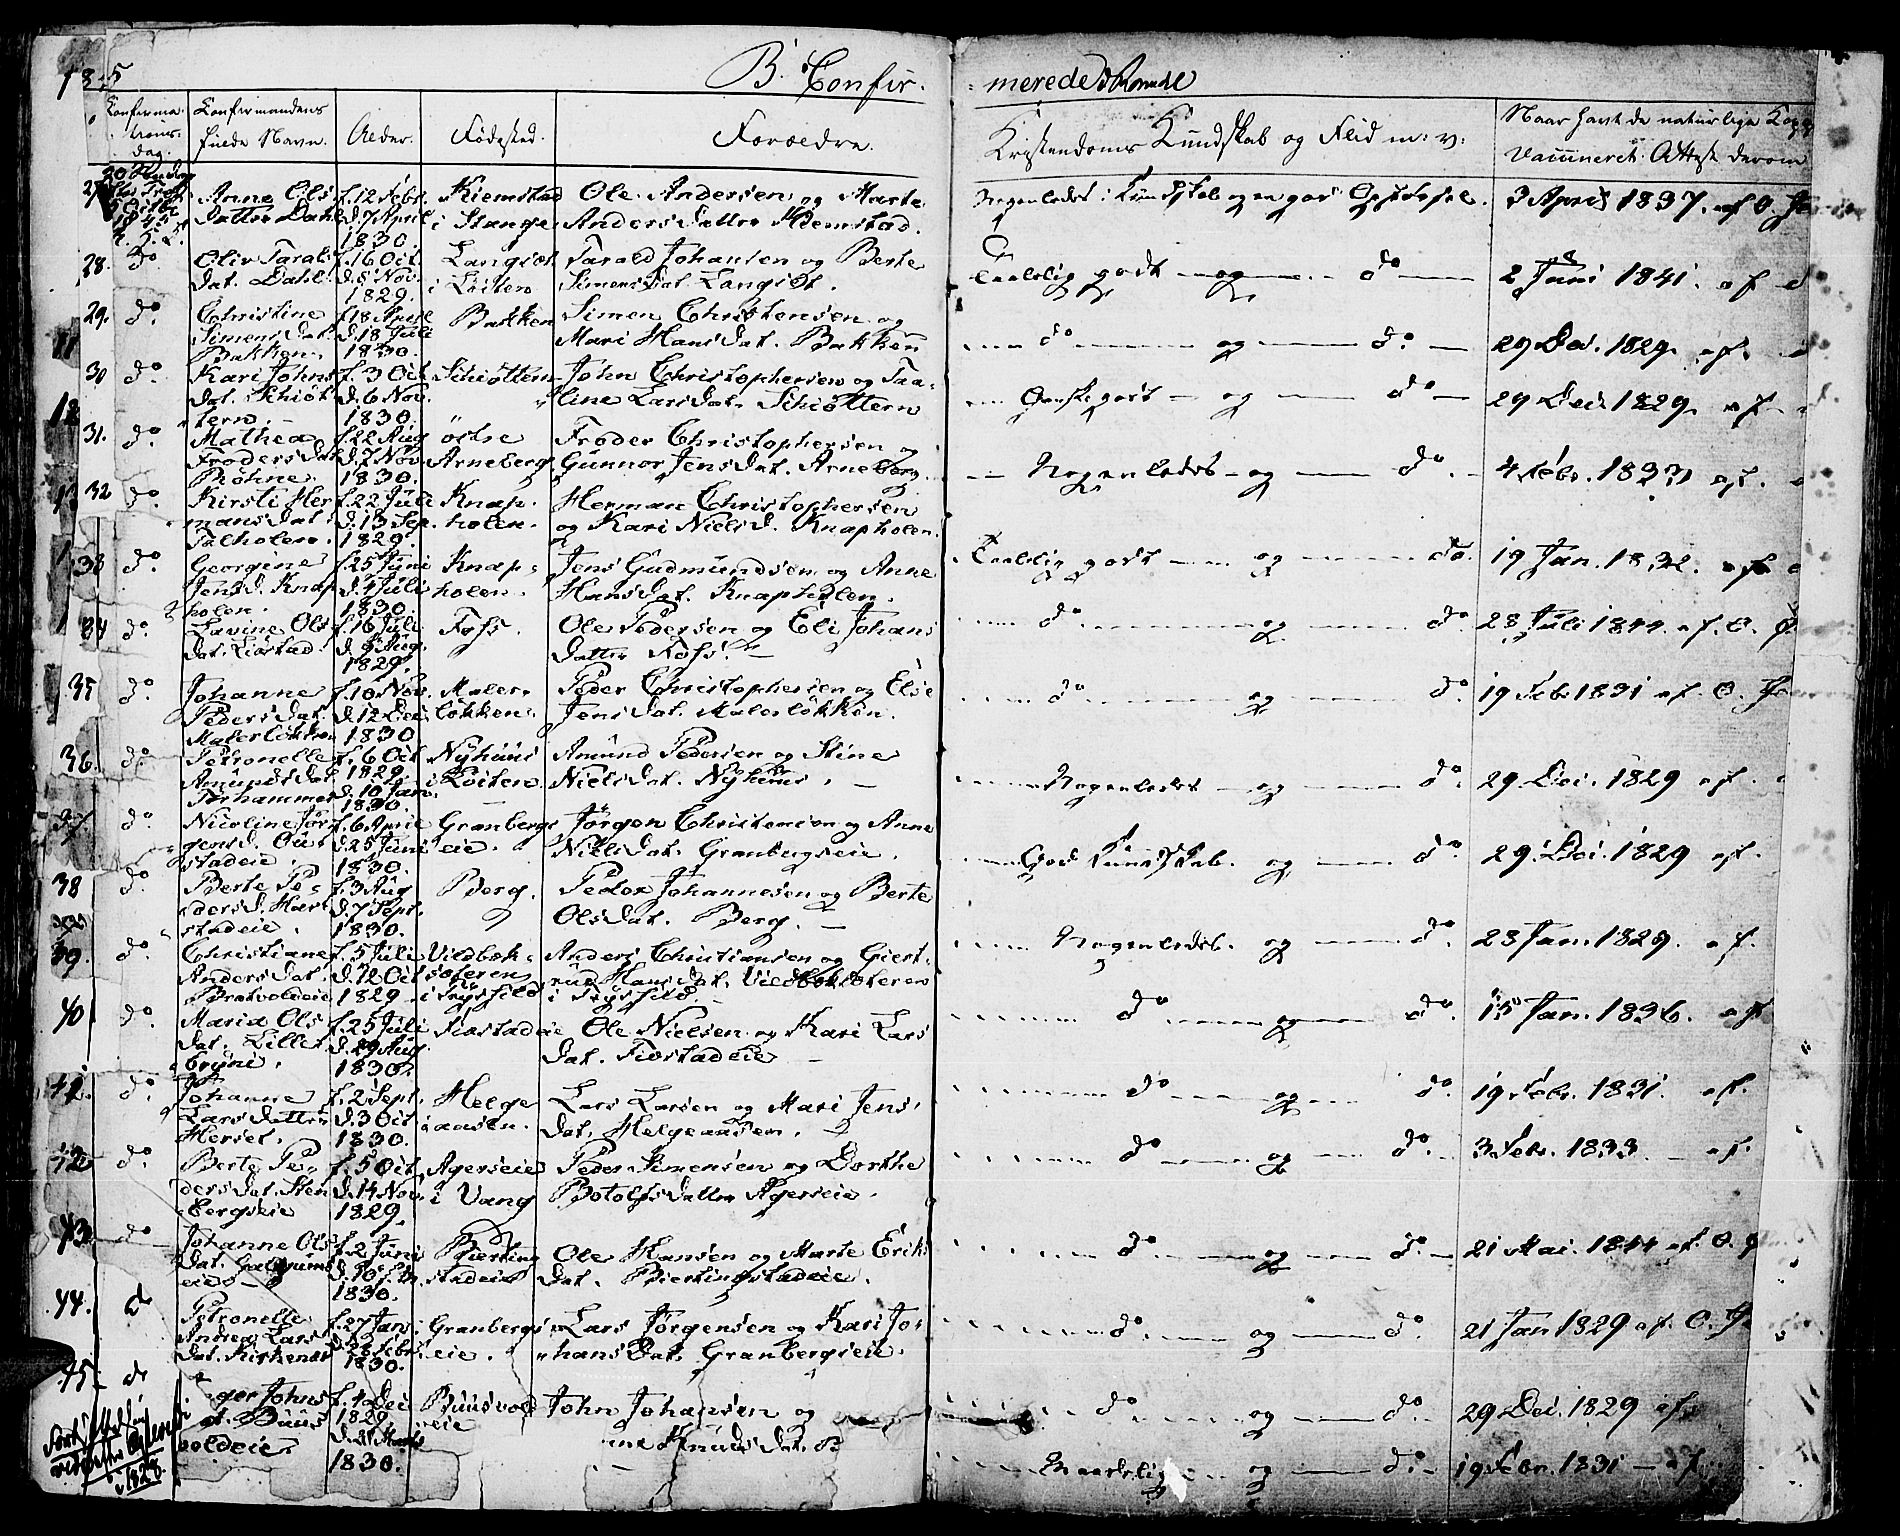 1845
B. Confirmerede Kvinde
Confirmations-Dag.
Confirmandens fulde Navn.
Alder.
Fødested.
Forældre.
Kristendoms Kundskab og Flid m: v:
Naar havt de naturlige Kop
Vaccineret. Attest derom
27
Anne Ols Datter Dahl
f. 12 Febr. d. 7 April 1830.
Kiemstad i Stange
Ole Andersen og Marte Andersdatter Kiemstad.
Nogenledes Kundskab og en god Opførsel.
3 April 1837. af O.
28.
do
Oliv Taralds Dat. Dahl
f. 16 Oct. d. 8 Nov. 1829.
Langsæt i Løiten
Tarald Johansen og Berte Simens Dat. Langsæt.
Taalelig godt — og — do —
2 Juni 1841. af
29.
do.
Christine Simens Dat. Bakken.
f. 18 April d. 18 Juli 1830.
Bakken
Simen Christensen og Mari Hans Dat. Bakken
— do — og — do. —
29 Dec. 1829. af.
30
do.
Kari Johns Dat. Schiøttern.
f. 3 Oct d. 6 Nov. 1830.
Schiøttern
John Christophersen og Taaline Lars Dat. Schiøttern
— Ganske godt — og — do —
29 Dec. 1829. af
31.
do.
Mathea Froders Dat. Pøhne.
f. 22 Aug d. 7 Nov. 1830.
østre Arneberg
Froder Christophersen og Gunnor Jens Dat. Arneberg.
— Nogenledes — og — do. —
4 Febr. 1833 af.
32
do.
Kirsti Hermans Dat.
f. 22 Juli d. 13 Sep. 1829.
Knapholen.
Herman Christophersen og Kari Niels D. Knapholen.
Taalelig godt — og — do.
19 Jan. 1832. af
33
do.
Georgine Jens D. Knapholen.
f. 25 Juni d. 4 Juli 1830.
Knapholen.
Jens Gudmundsen og Anne Hans Dat. Knapholen.
— do — og — do.
28 Juli 1844. af. O.
34
do.
Lavine Ols Dat. Liøstad.
f. 16 Juli d. 9 Aug. 1829.
Foss.
Ole Pedersen og Eli Johans Datter Foss. —
— do — og — do.
19 Feb 1831 af. O.
35
do.
Johanne Peders Dat. Malerløkken
f. 10 Nov. d. 12 Dec 1830
Malerløkken.
Peder Christophersen og Else Jens Dat. Malerløkken.
36.
do.
Petronelle Amunds Dat. Torhammer
f. 6 Oct 1829. d. 10 Jan. 1830.
Nyhuus i Løiten
Amund Pedersen og Stine Niels Dat. Nyhuus. —
— Nogenledes — og — do.
29 Dec. 1829 af.
37.
do.
Nicoline Jørgens D. Oustadeie.
f. 6 April d. 25 Juni 1830.
Granbergseie.
Jørgen Christensen og Anne Niels Dat. Granbergseie.
— God Kundskab. og — do.
29. Dec. 1829 af.
38
do.
Berte Peders D. Hørstadeie.
f. 3 Aug d. 7 Sept. 1830.
Berg.
Peder Johannesen og Berte Ols Dat. Berg. —
— Nogenledes. og — do.
23 Jan. 1829. af.
39.
do.
Christiane Anders Dat. Bratvoldeie
f. 5 Juli d. 12 Oct 1829
Vildbeksæteren i Trysfild
Anders Christiansen og Giertrud Hans Dat. Vildbeksæteren i Trysfild.
— do — og — do.
15 Jan. 1836. af
40
do.
Maria Ols Dat. Lillebryne.
f. 25 Juli d. 29 Aug. 1830.
Fiøstadeie
Ole Nielsen og Kari Lars Dat. Fiøstadeie —
— do — og — do.
19 Febr. 1831. af.
42.
do.
Johanne Lars Datter Herset.
f. 2 Sept. d. 3 Oct 1830.
Helgeaasen.
Lars Larsen og Mari Jens Dat. Helgeaasen. —
— do — og — do. —
3 Febr. 1833. — af.
42
do.
Berte Peders Dat. Stenbergseie
f. 5 Oct d. 14 Nov. 1829.
Agerseie i Vang
Peder Simensen og Dorthe Botolfs Datter Agerseie.
— do. — og — do. —
21 Mai. 1844 af. O.
43.
do
Johanne Ols Dat.
f. 2 Juni 1830.
Biertingstadeie
Ole Hansen og Marte Eriks Dat. Biertingstadeie.
— do. — og — do.
21 Jan 1829 af. O.
44.
do
Petronelle Andrea Lars Dat.
f. 27 Jan. d. 28 Febr. 1830.
Granbergseie.
Lars Jørgensen og Kari Johans Dat. Granbergseie.
— do. — og — do.
29 Dec. 1829 af.
45.
do
Johns Buusvoldeie.
f. 4 Dec 1829. 1830.
Buusvoldeie
John Johansen og Knuds Dat. B
— Maadelig — og — do. —
19 Febr. 1831 — af.
1828.